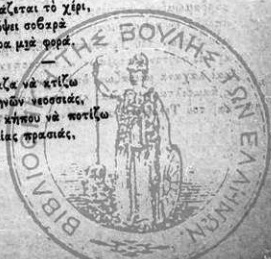 άζεται τὸ χέρι,
ψει σοβαρὰ
ρα μιὰ φορά.
ζα νὰ κτίζω
ηνῶν νεοσσιάς,
κήπου νὰ ποτίζω
ίας πρασιάς,
ΒΙΒΛΙΟΘΗΚΗ ΤΗΣ ΒΟΥΛΗΣ ΤΩΝ ΕΛΛΗΝΩΝ